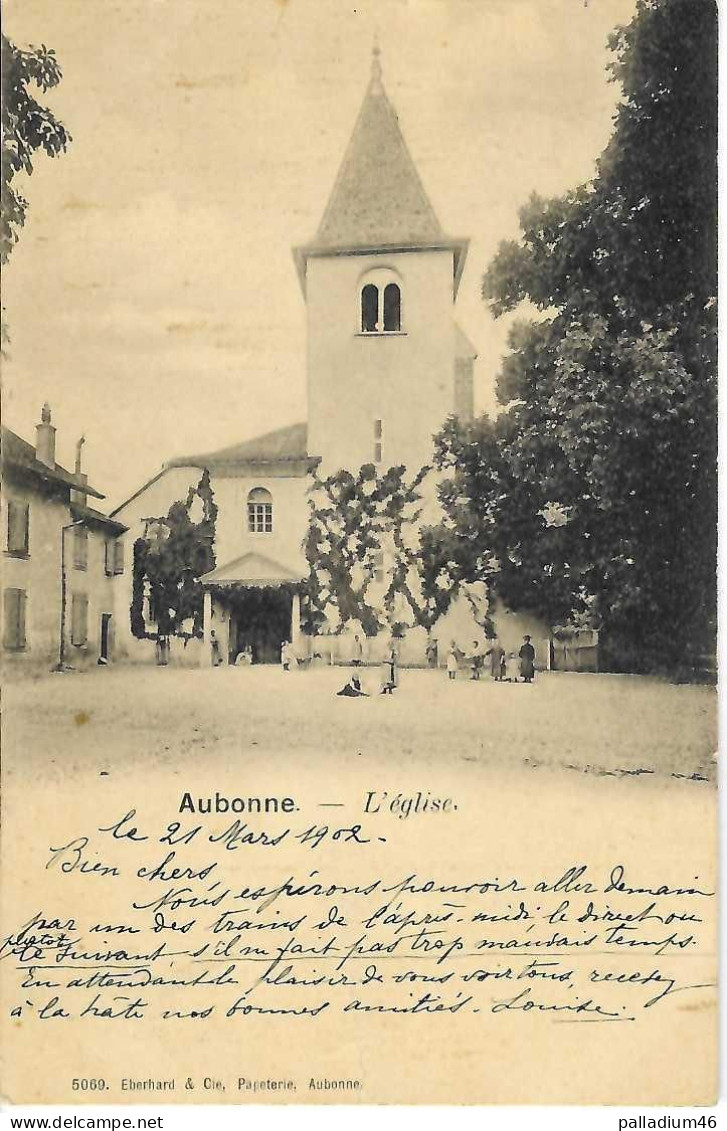 Aubonne. — L'église.
le 21 Mars 1902 -
Bien chers
Nous espérons pouvoir aller demain
par un des trains de l'après-midi le direct ou
plutôt
le suivant s'il ne fait pas trop mauvais temps.
En attendant le plaisir de vous voir tous, recevez
à la hâte nos bonnes amitiés. Louise.
5069. Eberhard & Cie, Papeterie, Aubonne.
palladium46